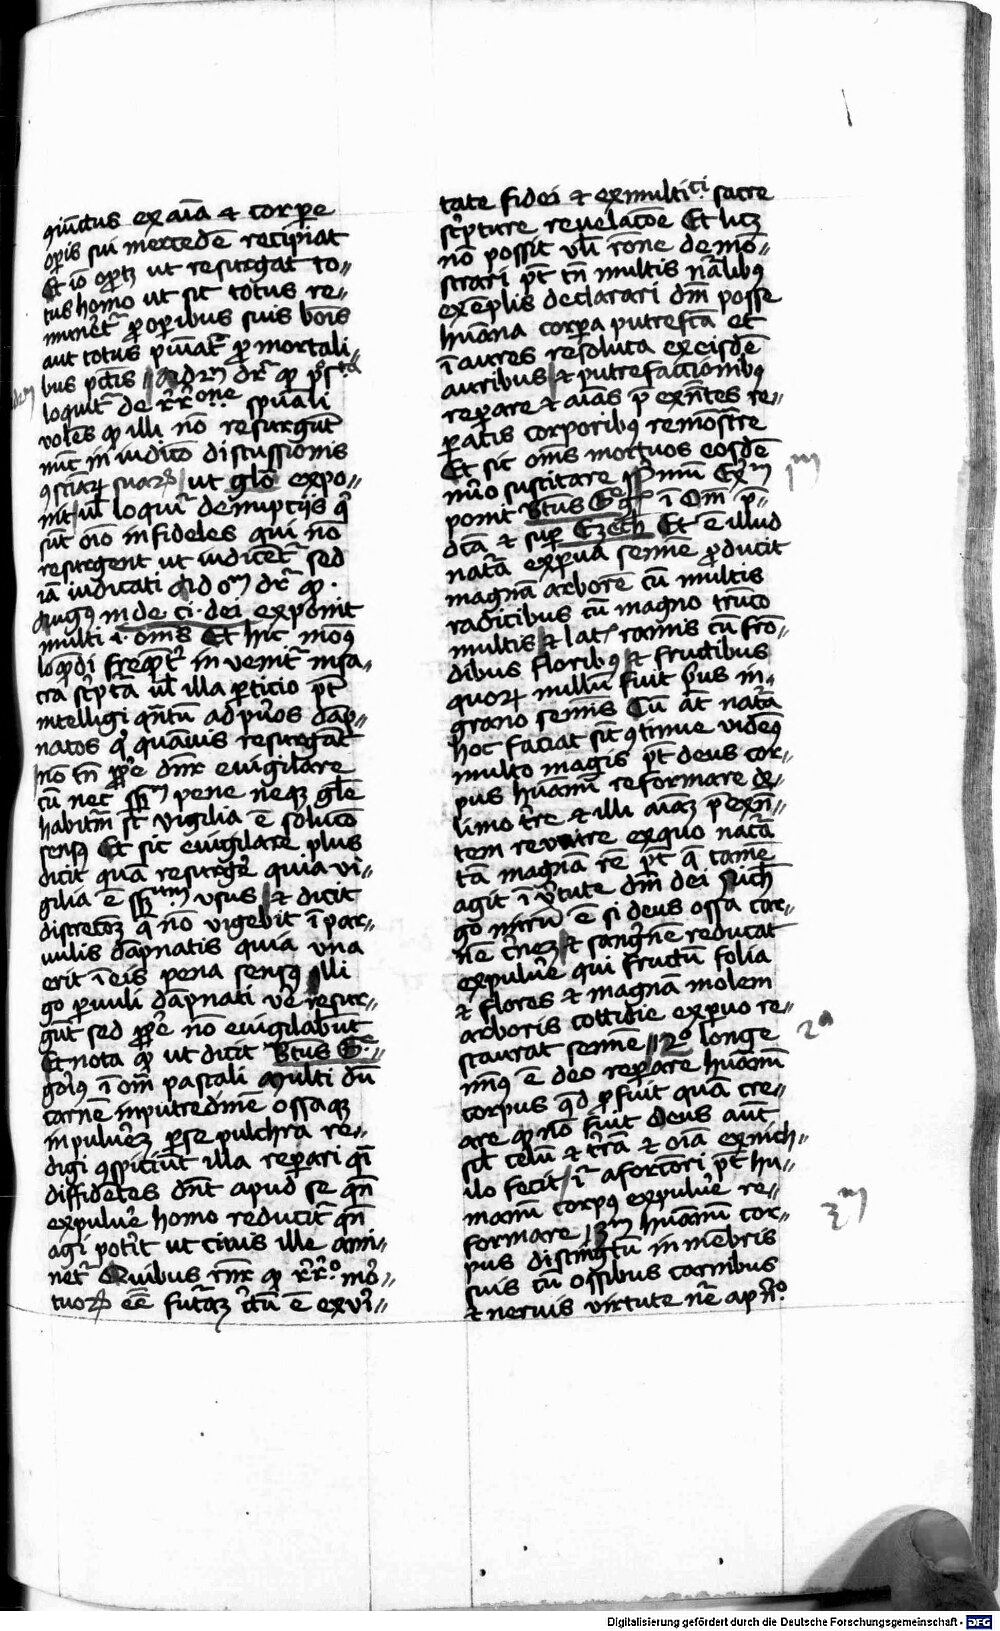 qiu̅ctus ex ai̅a et corpe
opis sui mercede̅ recipiat
Et io̅ oportʒ ut resurgat to//
tus homo ut sit totus re//
muner̅t ꝓ operibus suis bo̅is
aut totus puniat̅ ꝓ mortali//
bus pctis // Ad 2m dr̅ ꝙ ps̅ta
loquit̅ de rr̅o̅ne spu̅ali
vole̅s ꝙ illi no̅ resurgu̅t
nu̅c in iudic̅o discussionis
ꝯscie̅tiaꝝ suaꝝ / ut glo̅ expo//
nit / ul̅ loquit̅ de impiis qi
su̅t o̅i̅o infideles qui no̅
resurgent ut iudicet̅ sed
ia̅ iudicati Ad o̅m dr̅ ꝙ ·
Augꝰ in de · ci · dei exponit
multi · i · om̅s Et hic modꝰ
loque̅di freque̅t̅ in venit̅ in sa//
cra sc̅pta̅ ul̅ illa particio p̅t
intelligi qn̅tu̅ ad pu̅os da̅p//
natos qi qua̅uis resurga̅t
no̅ tn̅ ꝓpe dn̅r euigilare
cu̅ nec ss̅m pene neqʒ gl̅e
habituri st̅ vigilia e̅ soluc̅o
sensꝰ Et sic euigilare plus
dicit qua̅ resurge̅ quia vi//
gilia e̅ ss̅uum vsus / et dicit
discrecoʒ q̅ no̅ vigebit i̅ par//
uulis da̅pnatis quia vna
erit i̅ eis pena sensꝰ Illi
go paruuli da̅pnati ve̅ resur//
gu̅t sed ꝓpe no̅ euigilabu̅t
Et nota ꝙ ut dicit Bt̅us G̅e//
gorꝰ i̅ om̅ pascali Multi du̅
carne̅ in putredine̅ ossaqʒ
in pulue̅ʒ per se pulchra re//
digi ꝯspiciu̅t illa repari qi
diffide̅tes dn̅t apud se qn̅
ex pulue̅ homo reducit̅ qn̅
agi poterit ut cinis ille ani//
net̅ Quibus rn̅r ꝙ rr̅o mo̅//
tuoꝝ ee̅ futura̅ʒ certu̅ e̅ ex vi̅//
tate fidei et ex multici sacre
sc̅pture reuelac̅oe Et licʒ
no̅ possit vl̅i ro̅ne demo̅//
strari p̅t tn̅ multis na̅libꝰ
exe̅plis declarari dm̅ posse
hu̅ana corpa putrefc̅a et
i̅ aures resoluta ex eisde̅
auribus et putrefaccionibꝰ
repare et ai̅as p̅ exn̅tes re//
paratis corporibꝰ remo̅stre
Et sic om̅s mortuos eosde̅
nu̅o suscitare Primu̅ Ex̅m
ponit Bt̅us G̅eg i̅ Om̅ p̅//
dc̅a et super Ezech Et e̅ illud
nat̅a ex pua̅ semi̅e producit
magna̅ arbore̅ cu̅ multis
radicibus cu̅ magno tru̅co
multis et lat ramis cu̅ fro̅//
dibus floribꝰ et fructibus
quoꝝ nullu̅ fuit p̅us in//
grano semi̅s Cu̅ a̅t nat̅a
hoc faciat sic̅ ꝯtinue videꝰ
multo magis p̅t deus cor//
pus hu̅anu̅ reformare de//
limo t̅re et illi ai̅aʒ p̅exn̅//
tem reunire ex quo nat̅a
ta̅ magna̅ re̅ p̅t q̅ tame̅
agit i̅ v̅tute dm̅ dei Nich̅
go miru̅ e̅ si deus ossa car//
ne̅ c̅neʒ et sangne̅ reducat
ex pulue̅ qui fructu̅ folia
et flores et magna̅ molem
arboris cottidie ex puo re//
staurat semi̅e // 2o longe
min̅ꝰ e̅ deo reparare hu̅anu̅
corpus qd̅ ꝓfuit qua̅ cre//
are ꝙ no̅ fuit Deus au̅t
sil̅ celu̅ et t̅ra̅ et oi̅a ex nich//
ilo fecit / i̅ a forc̅ori p̅t hu//
manu̅ corpꝰ ex pulue̅ re//
formare / 3m hu̅anu̅ cor//
pus distingtu̅ in me̅bris
suis cu̅ ossibus carnibus
et neruis virtute ne̅ a p̅n̅o
1m
2a
3m
Digitalisierung gefördert durch die Deutsche Forschungsgemeinschaft - DFG